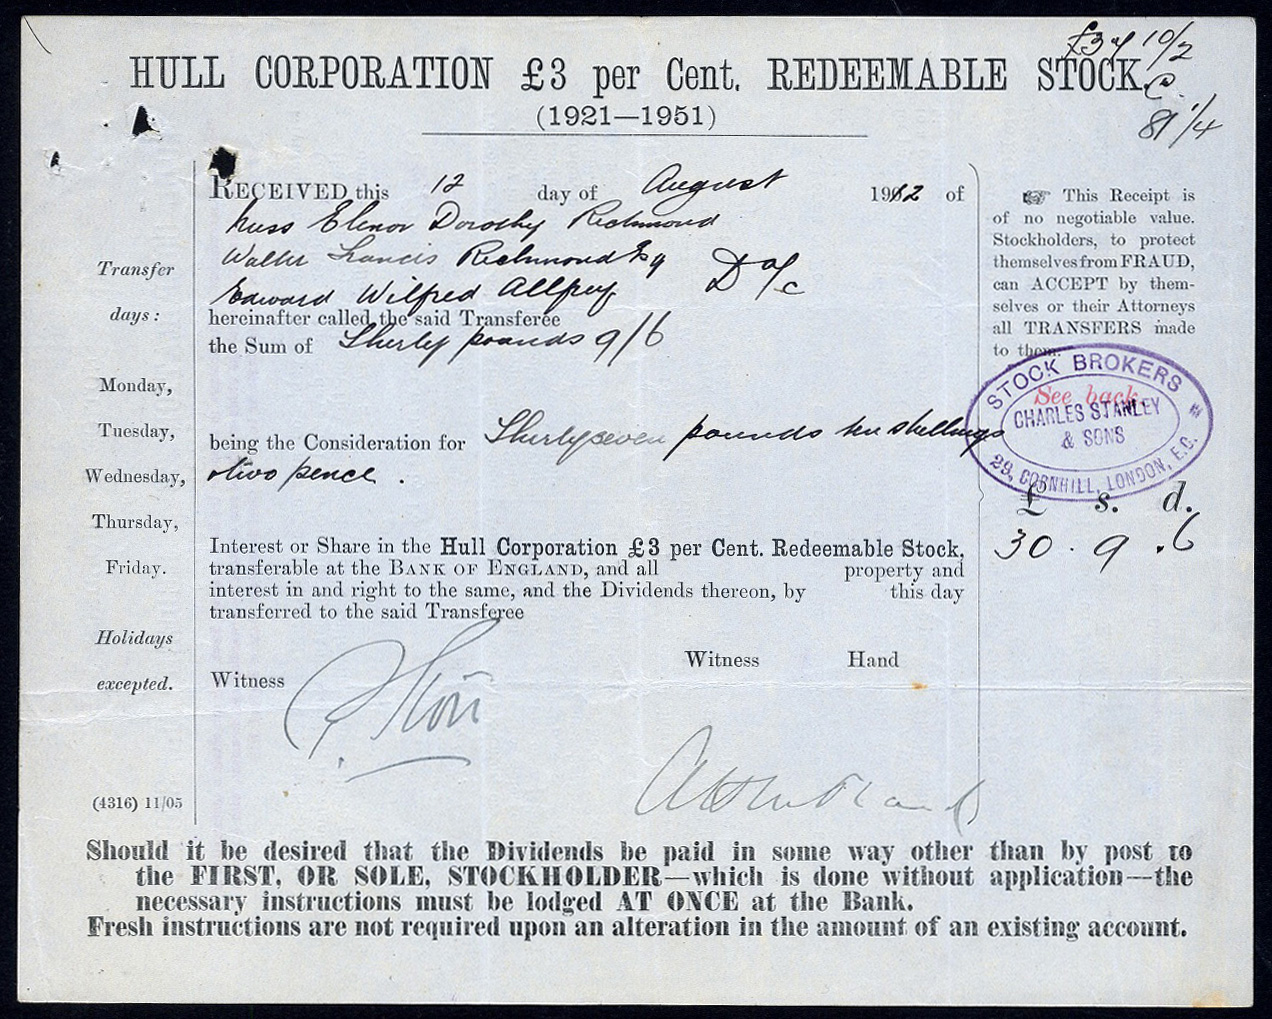 £3 of 10/2
HULL CORPORATION £3 per Cent. REDEEMABLE STOCK.
@
(1921—1951)
81 1/4
RECEIVED this 12 day of August 1912 of
Miss Elenor Dorothy Richmond
Walter Francis Richmond Esq
Edward Wilfred Allfrey
D a/c
hereinafter called the said Transferee
the Sum of Thirty pounds 9/6
being the Consideration for Thirtyseven pounds ten shillings
& two pence.
Interest or Share in the Hull Corporation £3 per Cent. Redeemable Stock,
transferable at the BANK OF ENGLAND, and all property and
interest in and right to the same, and the Dividends thereon, by this day
transferred to the said Transferee
Witness Hand
Witness
Transfer
days:
Monday,
Tuesday,
Wednesday,
Thursday,
Friday.
Holidays
excepted.
(4316) 11/05
This Receipt is
of no negotiable value.
Stockholders, to protect
themselves from FRAUD,
can ACCEPT by them-
selves or their Attorneys
all TRANSFERS made
to them.
See back.
STOCK BROKERS
CHARLES STANLEY
& SONS
29, CORNHILL, LONDON, E.C.
£ s. d.
30 . 9 . 6
Should it be desired that the Dividends be paid in some way other than by post to
the FIRST, OR SOLE, STOCKHOLDER—which is done without application—the
necessary instructions must be lodged AT ONCE at the Bank.
Fresh instructions are not required upon an alteration in the amount of an existing account.